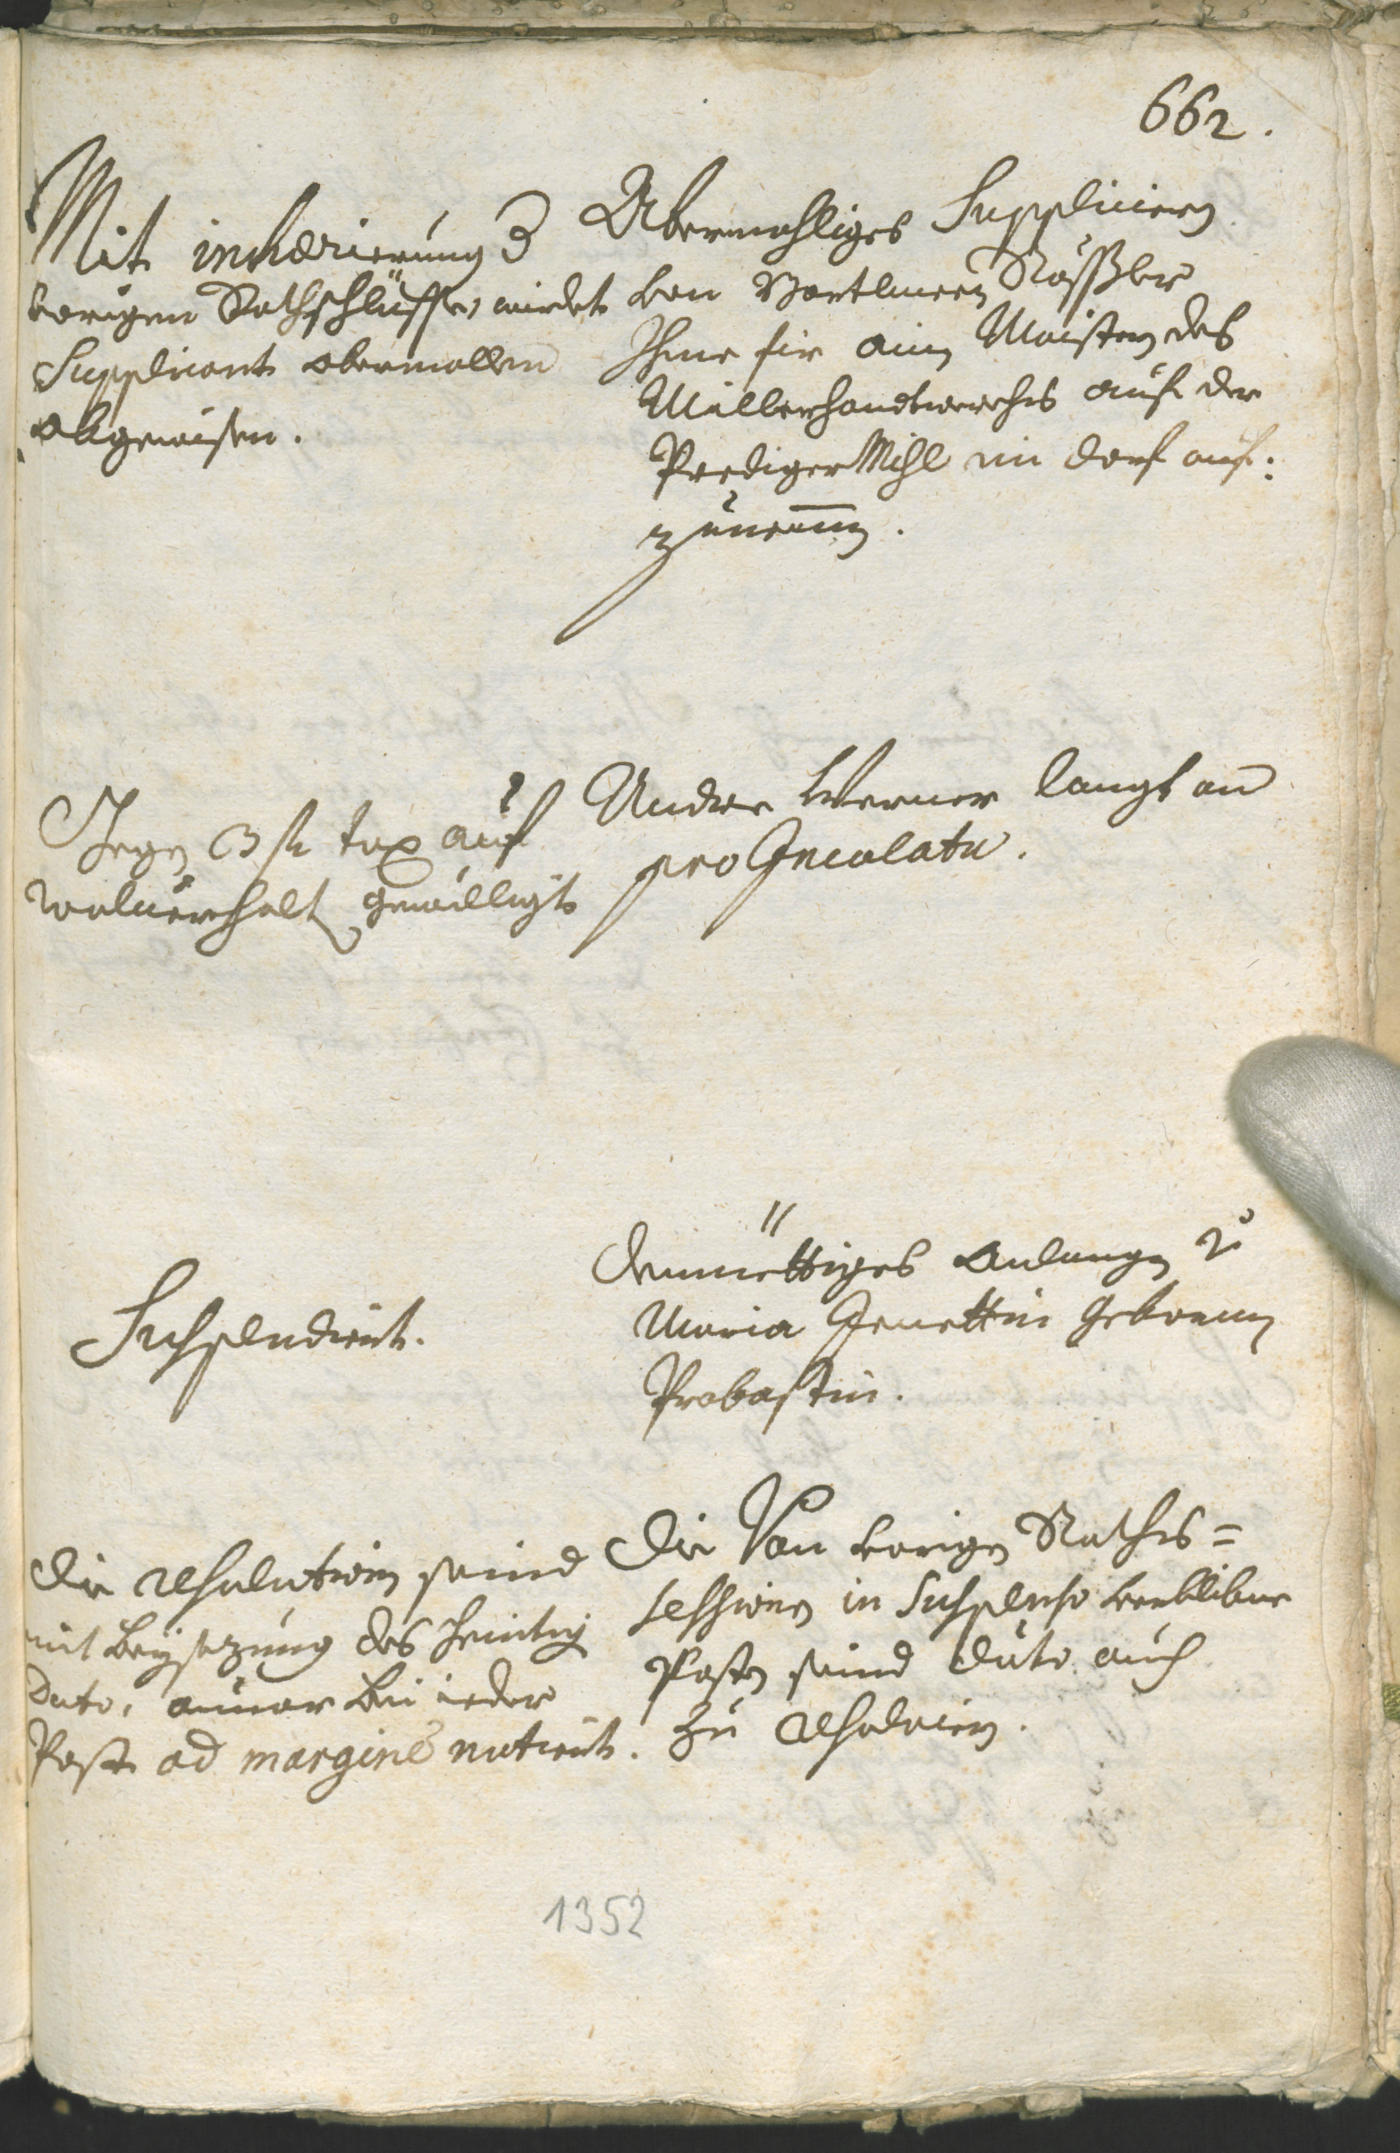 662.
Mit inhærierung
vorigen Rathschlusses wirdet
Supplicant abermallen
abgewisen.
Abermahliges Suppliciern
von Bartlmeen Rößler
Ihme fir ain Maister des
Millerhandtwerchs auf der
PredigerMihl im dorf auf:
zunemmen.
Gegen 3 fl tax auf
wolverhalten gewilligt
Andree Werner langt an
pro Incolatu.
Suspendiert.
Demuettiges Anlangen
Maria geborne
Probastin.
Die resolution seind
mit beysezung des heutigen
Dato, annor bei ieder
Post ad marginē notiert.
Die Von vorigen Raths=
session in Suspenso verblibne
Posten seind dato auch
zu resolviern.
1352